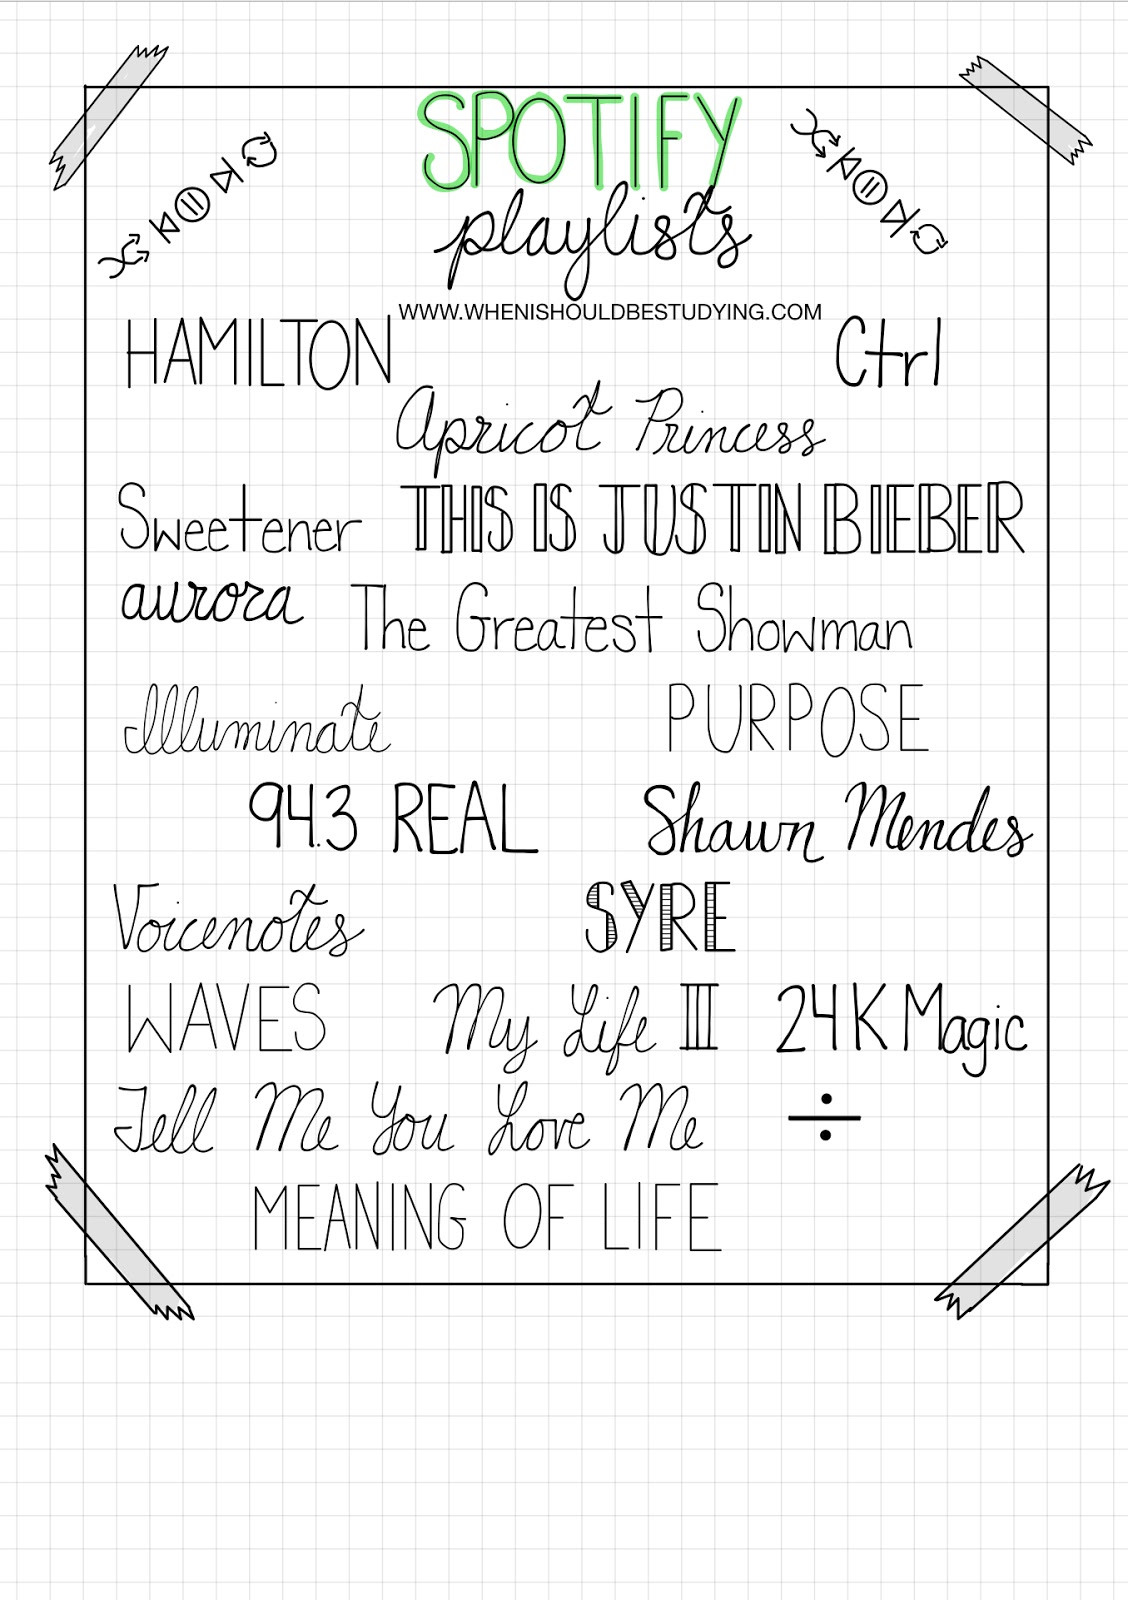 SPOTIFY
playlists
WWW.WHENISHOULDBESTUDYING.COM
HAMILTON Ctrl
Apricot Princess
Sweetener THIS IS JUSTIN BIEBER
aurora The Greatest Showman
Illuminate PURPOSE
94.3 REAL Shawn Mendes
Voicenotes SYRE
WAVES My Life III 24K Magic
Tell Me You Love Me ÷
MEANING OF LIFE